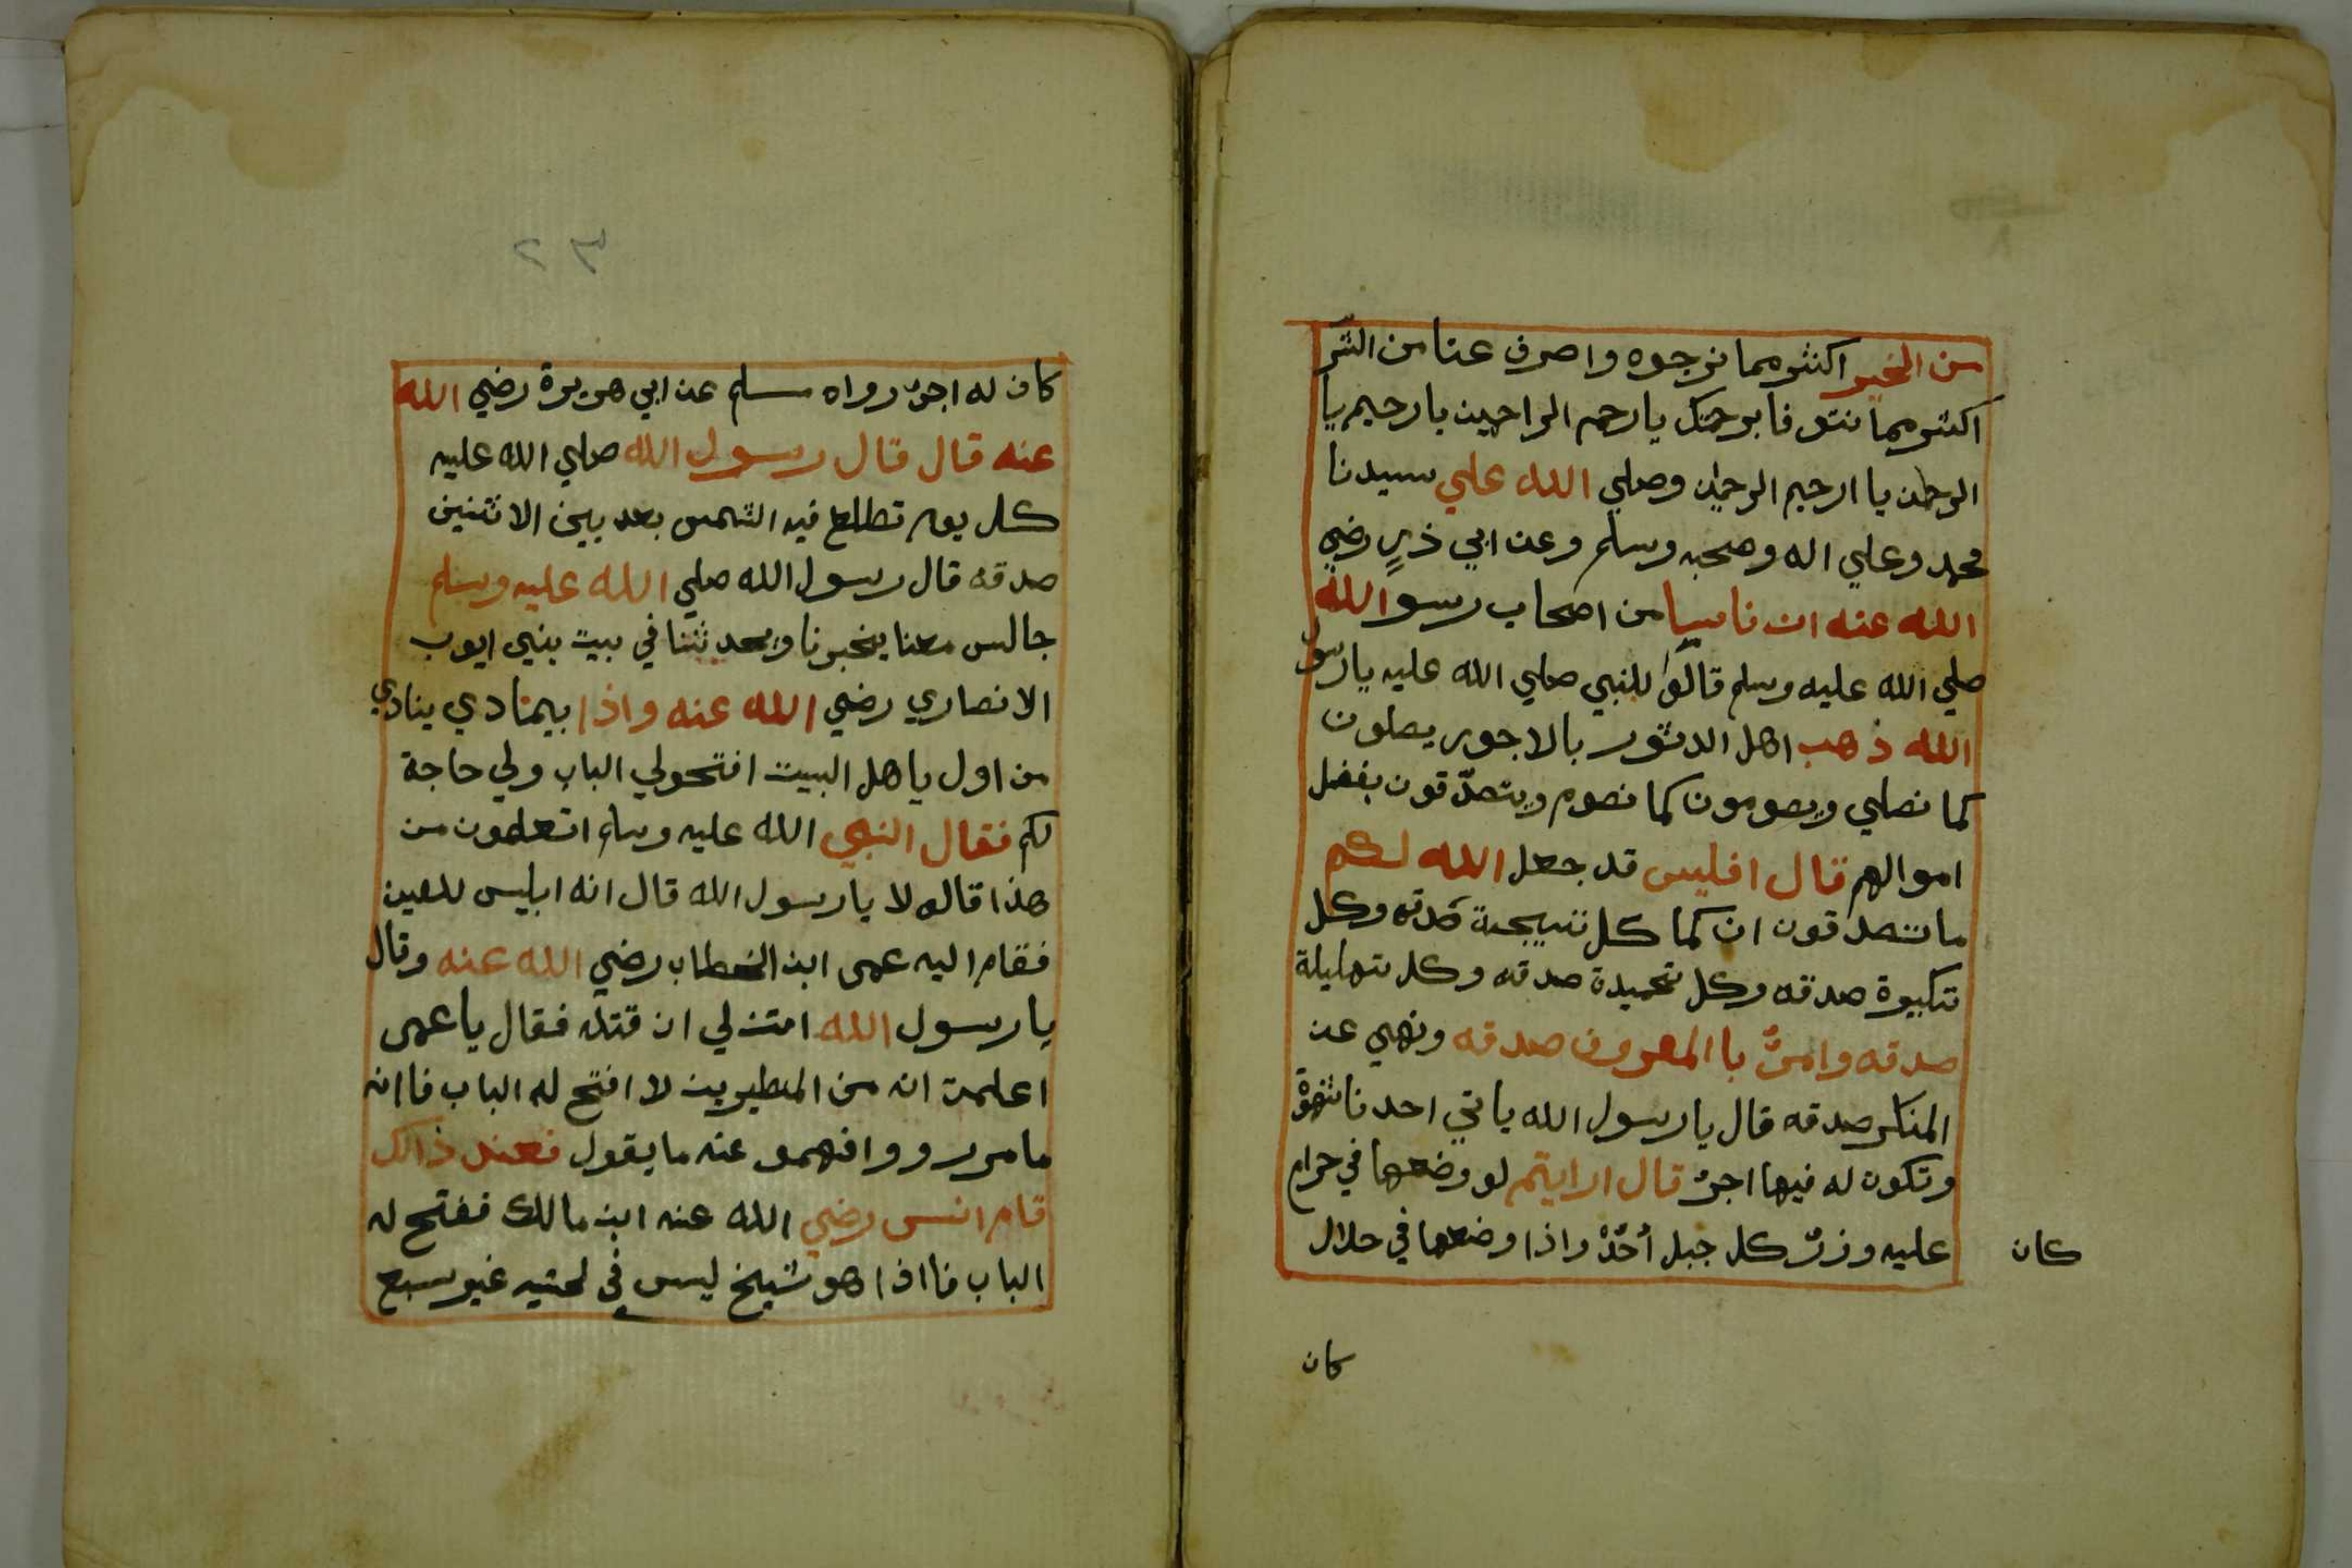 من الخير اكثر مما نرجوه واصرف عنا من الشر
اكثر مما نتو فا برحمتك يا رحم الراحمين يا رحيم يا
الرحمن يا الرحيم الرحمن وصلي الله علي سيدنا
محمد وعلي اله وصحبه وسلم وعن ابي ذرٍ رضي
الله عنه ان ناسا من اصحاب رسو الله
صلي الله عليه وسلم قالو للنبي صلي الله عليه يا رسول
الله ذهب اهل الدثور بالاجور يصلون
كما نصلي ويصومون كما نصوم ويتصدّقون بفضل
اموالهم قال افليس قد جعل الله لكم
ما تتصدقون ان كما كل تسبيحة صدقه وكل
تكبيرة صدقه وكل تحميدة صدقه وكل تهليلة
صدقه وامرٌ باالمعروف صدقه ونهي عن
المنكر صدقه قال يا رسول الله ياتي احدنا شهوة
وتكون له فيها اجرٌ قال ارايتم لو وضعها في حرام
عليه وزرٌ كل جبل أحُدْ واذا وضعها في حلال
كان
كان
٢٣
كان له اجرٌ رواه مسلم عن ابي هريرة رضي الله
عنه قال قال رسول الله صلي الله عليه
كل يوم تطلع فيه الشمس بعد بين الاثنين
صدقه قال رسول الله صلي الله عليه وسلم
جالس معنا يخبرنا ويحدثنا في بيت بني ايوب
الانصاري رضي الله عنه واذا بيمنادي ينادي
من اول ياهل البيت افتحولي الباب ولي حاجة
لكم فقال النبي الله عليه وسلم اتعلمون من
هذا قالو لا يا رسول الله قال انه ابليس للعين
فقام اليه عمر ابن الخطاب رضي الله عنه وقال
يا رسول الله امتذ لي ان قتله فقال يا عمر
اعلمت انه من المنطيرين لا افتح له الباب فاانه
مامرر ووافهمو عنه ما يقول فعند ذالك
قام انس رضي الله عنه ابن مالك ففتح له
الباب فااذا هو شيخ ليس في لحتيه غير سبع